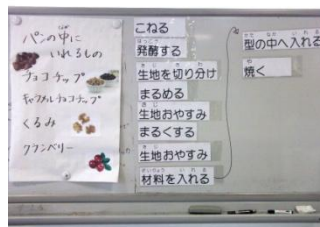 パンの中に
いれるもの
チョコチップ
キャラメルチョコチップ
くるみ
クランベリー
こねる
発酵する
生地を切り分け
まるめる
生地おやすみ
まるくする
生地おやすみ
材料を入れる
型の中へ入れる
焼く